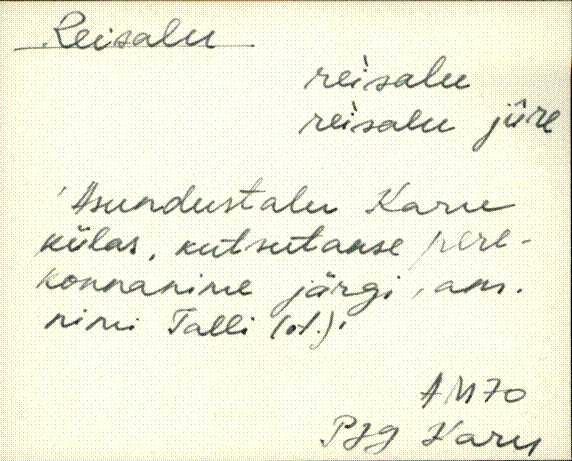 Reisalu
reìsalu
reìsalu jûre
'Asundustalu Karu
külas, kutsutakse pere-
konnanime järgi, am.
nimi Talli (ol.)'
AM70
PJg Karu